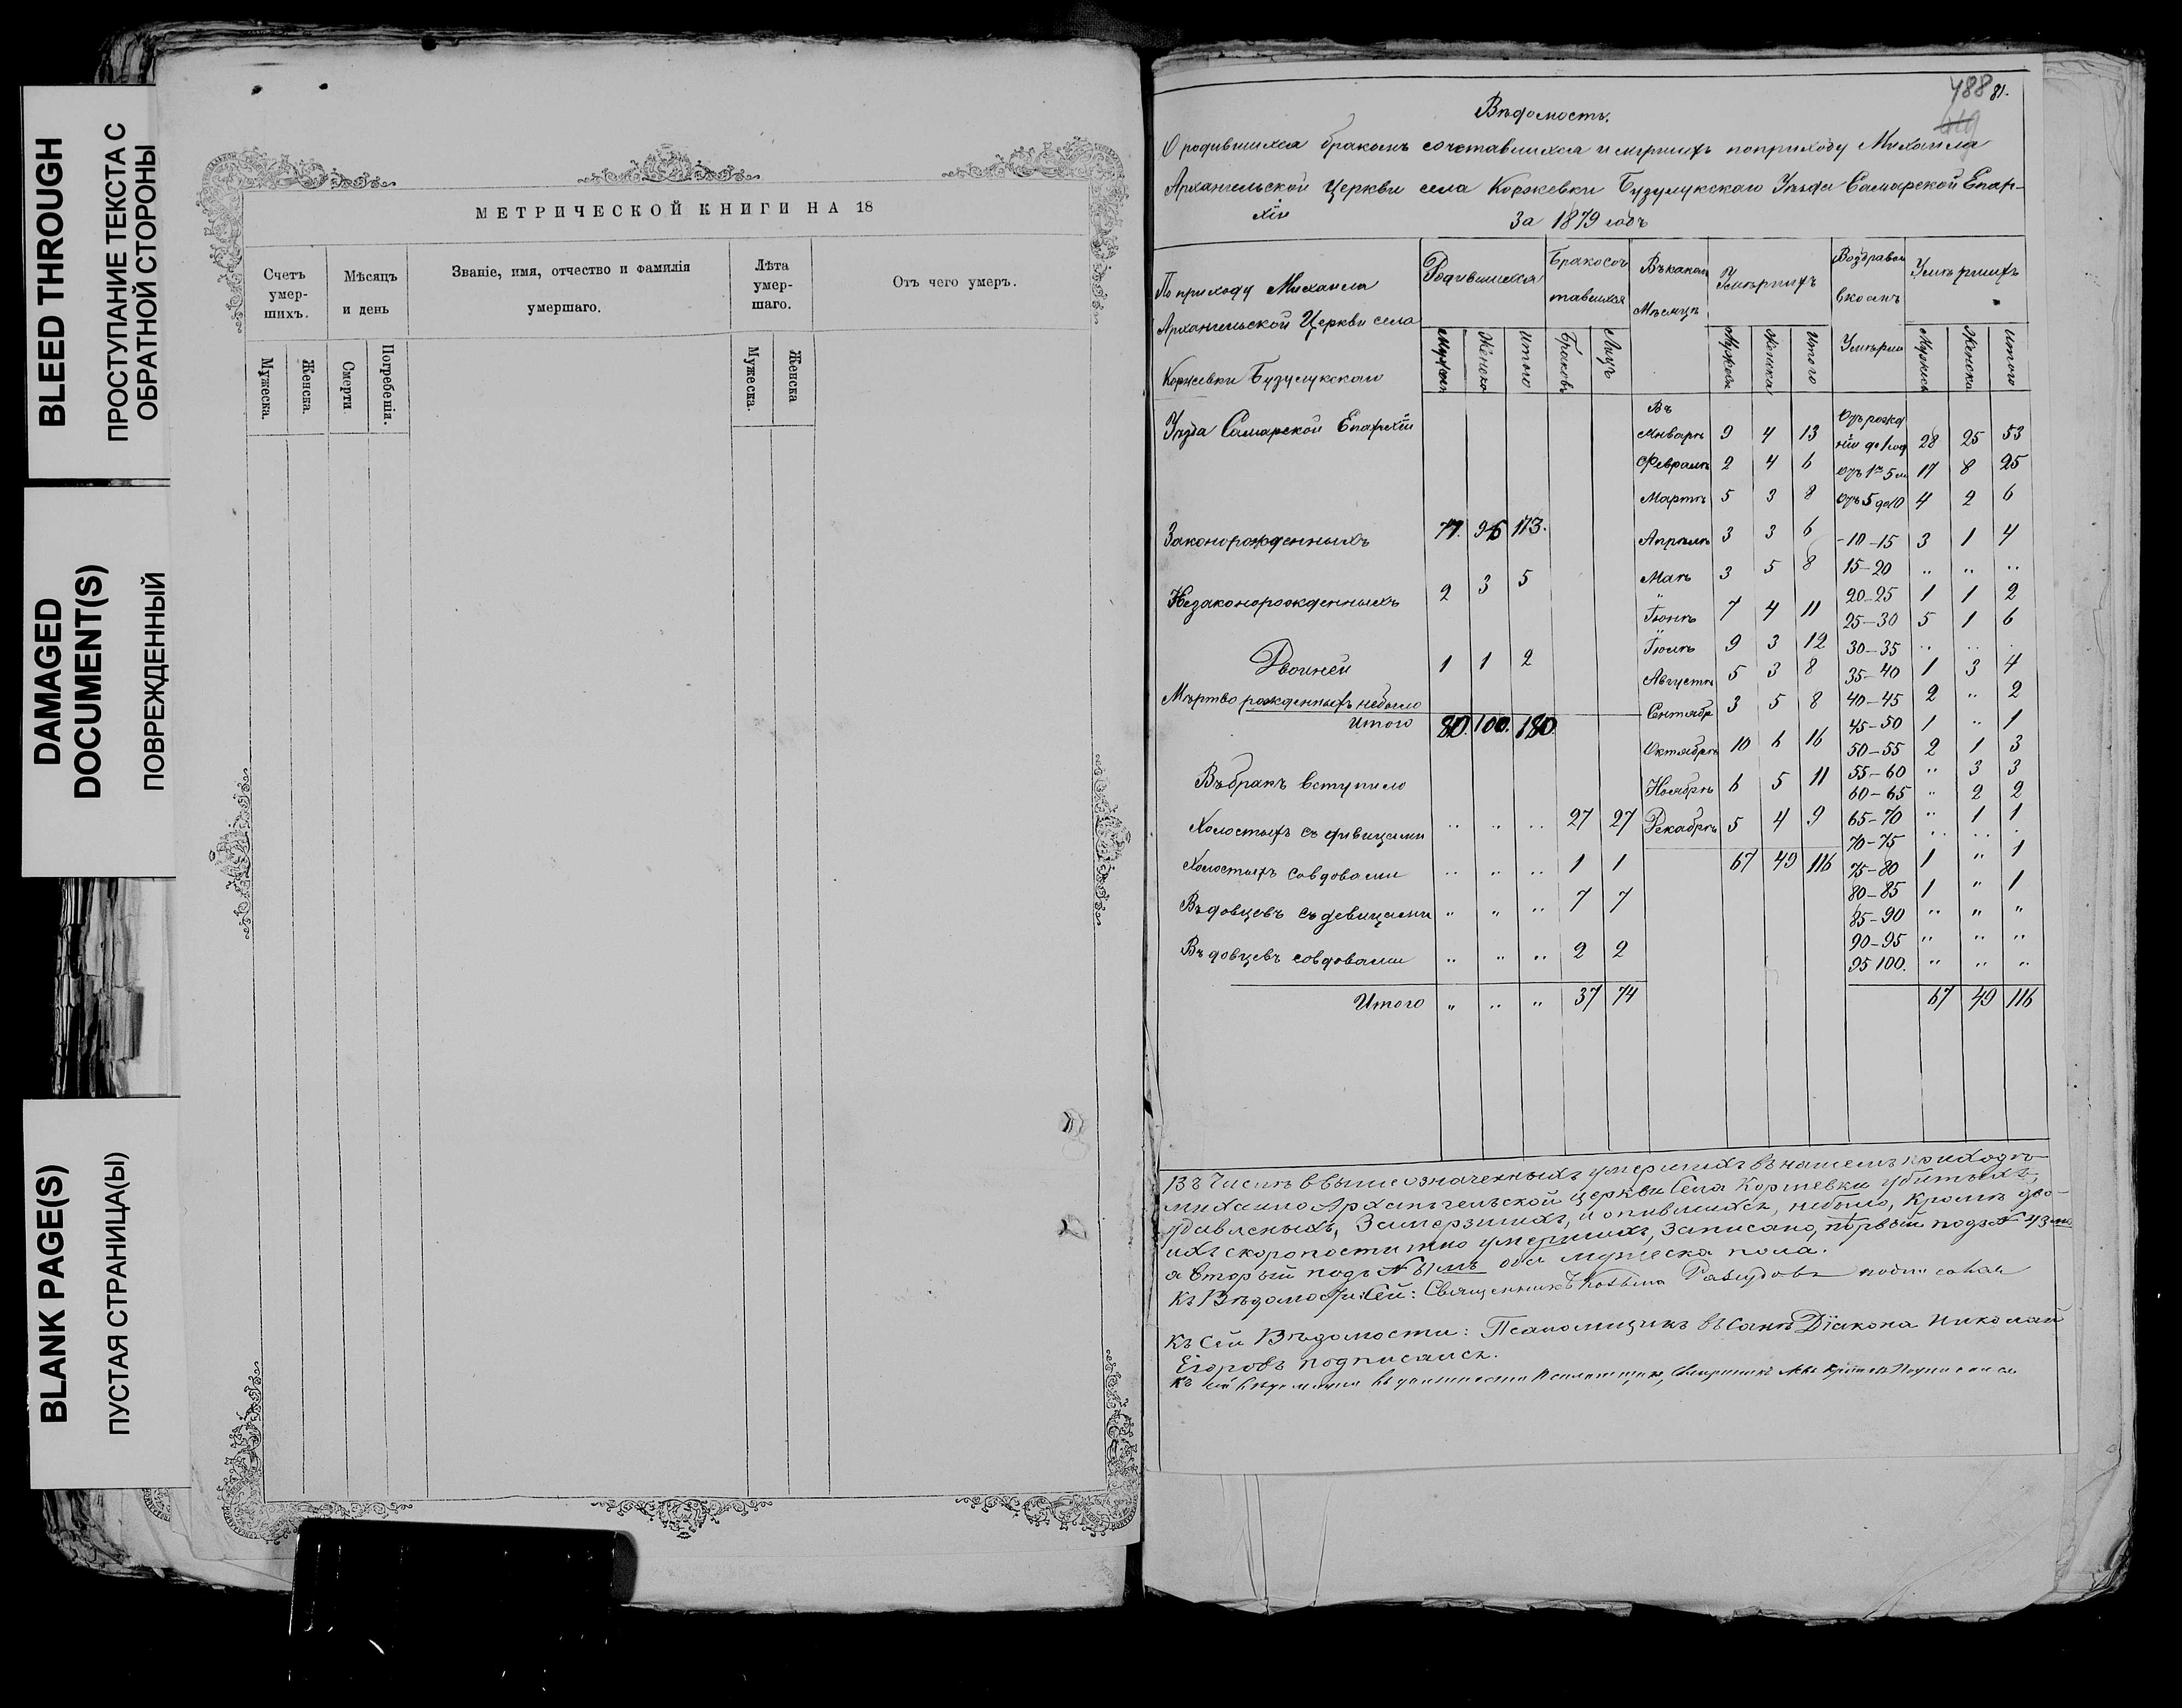 BLEED THROUGH
ПРОСТУПАНИЕ ТЕКСТА С
ОБРАТНОЙ СТОРОНЫ
DAMAGED
DOCUMENT(S)
ПОВРЕЖДЕННЫЙ
BLANK PAGE(S)
ПУСТАЯ СТРАНИЦА(Ы)
МЕТРИЧЕСКОЙ КНИГИ НА 18
Счетъ умер- шихъ.
Мѣсяцъ и день
Званіе, имя, отчество и фамилія умершаго.
Лѣта умер- шаго.
Отъ чего умеръ.
Мужеска. Женска. Смерти Погребенія. Мужеска. Женска
488 81.
Вѣдомость.
О родившихся бракомъ сочетавшихся и умершихъ поприходу Михаила
Архангельской Церкви села Коржевки Бузулукскаго Уѣзда Самарской Епар-
хіи За 1879 годъ
По приходу Михаила
Архангельской Церкви села
Коржевки Бузулукскаго
Уѣзда Самарской Епархіи
Родившихся
Бракосоч
тавшихся
Въ каком
Мѣсяцѣ
Умѣршихъ
Умѣршихъ
Женска Итого Браковъ Лицъ
Женска Итого Умѣрши Женска Итого
Въ
Январѣ 9 4 13 28 25 53
Февралѣ 2 4 6 17 8 25
Мартѣ 5 3 8 Отъ 5 до 10 4 2 6
Законорожденныхъ 77. 96 173. Апрѣлѣ 3 3 6 -10-15 3 1 4
Маѣ 3 5 8 15-20 .. .. ..
Незаконорожденныхъ 2 3 5 20-25 1 1 2
Іюнѣ 7 4 11 25-30 5 1 6
Іюлѣ 9 3 12 30-35 .. ..
Двоиней 1 1 2 Августѣ 5 3 8 35-40 1 3 4
Мѣртво рожденныхъ небыло Сентябр 3 5 8 40-45 2 " 2
Итого 80. 100. 180 45-50 1 " 1
Октябрѣ 10 6 16 50-55 2 1 3
Въ бракъ вступило Ноябрѣ 6 5 11 55-60 " 3 3
60-65 " 2 2
Холостыхъ съ дивицами .. .. .. 27 27 Декабрѣ 5 4 9 65-70 " 1 1
70-75 .. .. .
Холостыхъ совдовами .. .. .. 1 1 67 49 116 75-80 1 " 1
80-85 1 " 1
Въдовцевъ съ девицами " " .. 7 7 85-90 .. " "
90-95 " .. ..
Въдовцевъ совдовами .. " .. 2 2 95 100. .. .. ..
Итого " .. " 37 74 67 49 116
Въ Числѣ ввышеозначенныхъ умершихъ въ нашемъ приходѣ
Михаило Архангельской церкви Села Коржевки убитыхъ,
удавленыхъ, Замерзшихъ, и опившихся, небыло, Кромѣ дво-
ихъ скоропостижно умершихъ, Записано, первый подъ № 43
а вторый подъ № оба мужеска пола.
Къ Вѣдомости Сей: Священникъ подписалъ
Къ Сей Вѣдомости: Псаломщикъ въ Санѣ Діакона Николай
Егоровъ подписался.